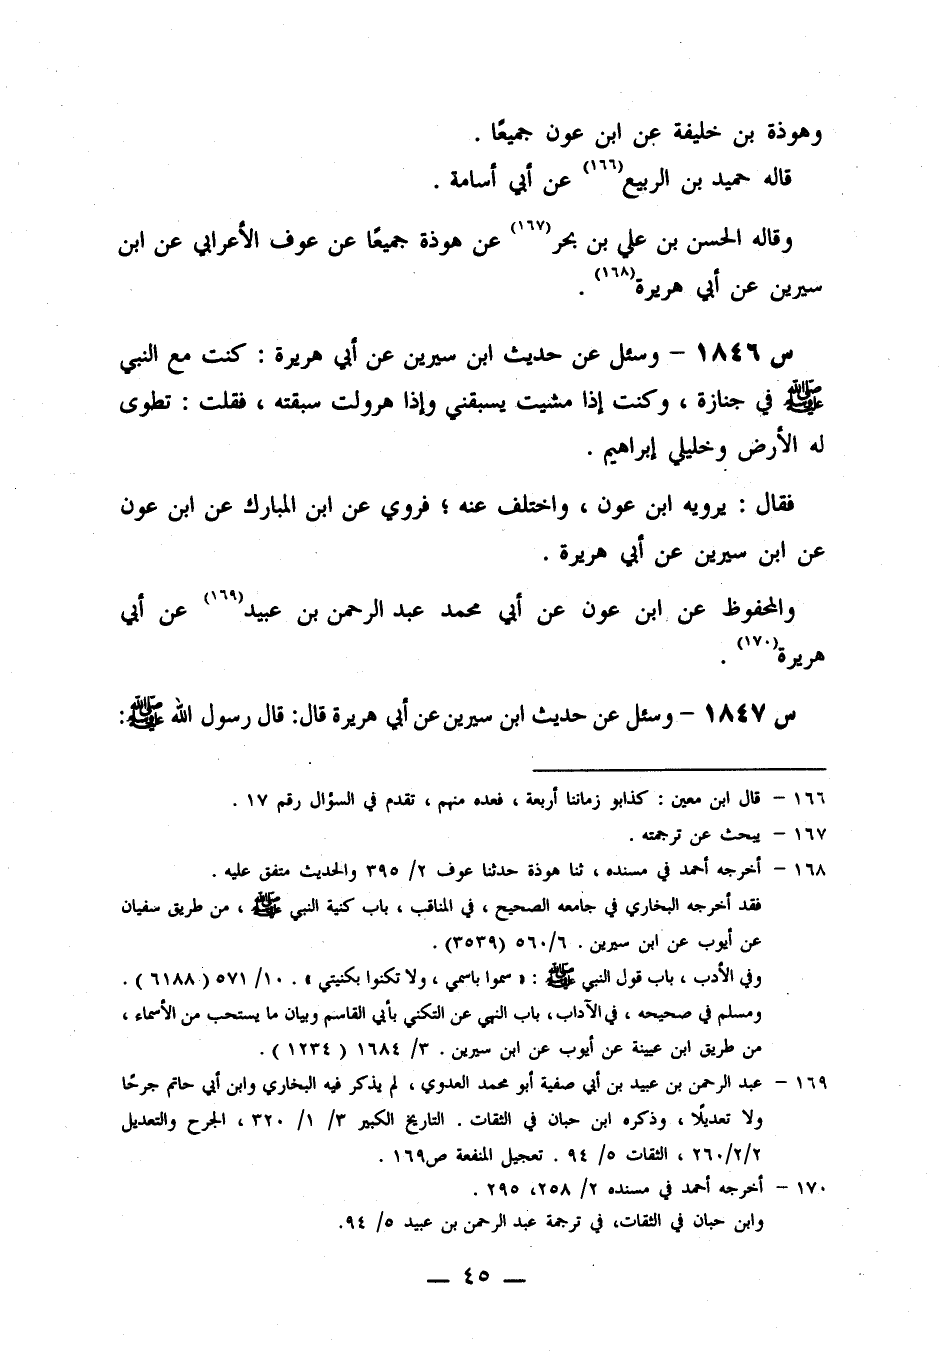 وهوذة بن خليفة عن ابن عون جميعًا .
قاله حميد بن الربيع(١٦٦) عن أبي أسامة .
وقاله الحسن بن علي بن بحر(١٦٧) عن هوذة جميعًا عن عوف الأعرابي عن ابن
سيرين عن أبي هريرة(١٦٨) .
س ١٨٤٦ - وسئل عن حديث ابن سيرين عن أبي هريرة : كنت مع النبي
ﷺ في جنازة ، وكنت إذا مشيت يسبقني وإذا هرولت سبقته ، فقلت : تطوى
له الأرض وخليلي إبراهيم .
فقال : يرويه ابن عون ، واختلف عنه ؛ فروي عن ابن المبارك عن ابن عون
عن ابن سيرين عن أبي هريرة .
والمحفوظ عن ابن عون عن أبي محمد عبد الرحمن بن عبيد(١٦٩) عن أبي
هريرة(١٧٠) .
س ١٨٤٧ - وسئل عن حديث ابن سيرين عن أبي هريرة قال: قال رسول الله ﷺ:
١٦٦ - قال ابن معين : كذابو زماننا أربعة ، فعده منهم ، تقدم في السؤال رقم ١٧ .
١٦٧ - يبحث عن ترجمته .
١٦٨ - أخرجه أحمد في مسنده ، ثنا هوذة حدثنا عوف ٢/ ٣٩٥ والحديث متفق عليه .
فقد أخرجه البخاري في جامعه الصحيح ، في المناقب ، باب كنية النبي ﷺ ، من طريق سفيان
عن أيوب عن ابن سيرين . ٥٦٠/٦ (٣٥٣٩) .
وفي الأدب ، باب قول النبي ﷺ : « سموا باسمي ، ولا تكنوا بكنيتي » . ١٠/ ٥٧١ ( ٦١٨٨ ) .
ومسلم في صحيحه ، في الآداب، باب النهي عن التكني بأبي القاسم وبيان ما يستحب من الأسماء ،
من طريق ابن عيينة عن أيوب عن ابن سيرين . ٣/ ١٦٨٤ ( ١٢٣٤ ) .
١٦٩ - عبد الرحمن بن عبيد بن أبي صفية أبو محمد العدوي ، لم يذكر فيه البخاري وابن أبي حاتم جرحًا
ولا تعديلًا ، وذكره ابن حبان في الثقات . التاريخ الكبير ٣/ ١/ ٣٢٠ ، الجرح والتعديل
٢٦٠/٢/٢ ، الثقات ٥/ ٩٤ . تعجيل المنفعة ص١٦٩ .
١٧٠ - أخرجه أحمد في مسنده ٢/ ٢٥٨، ٢٩٥ .
وابن حبان في الثقات، في ترجمة عبد الرحمن بن عبيد ٥/ ٩٤.
— ٤٥ —